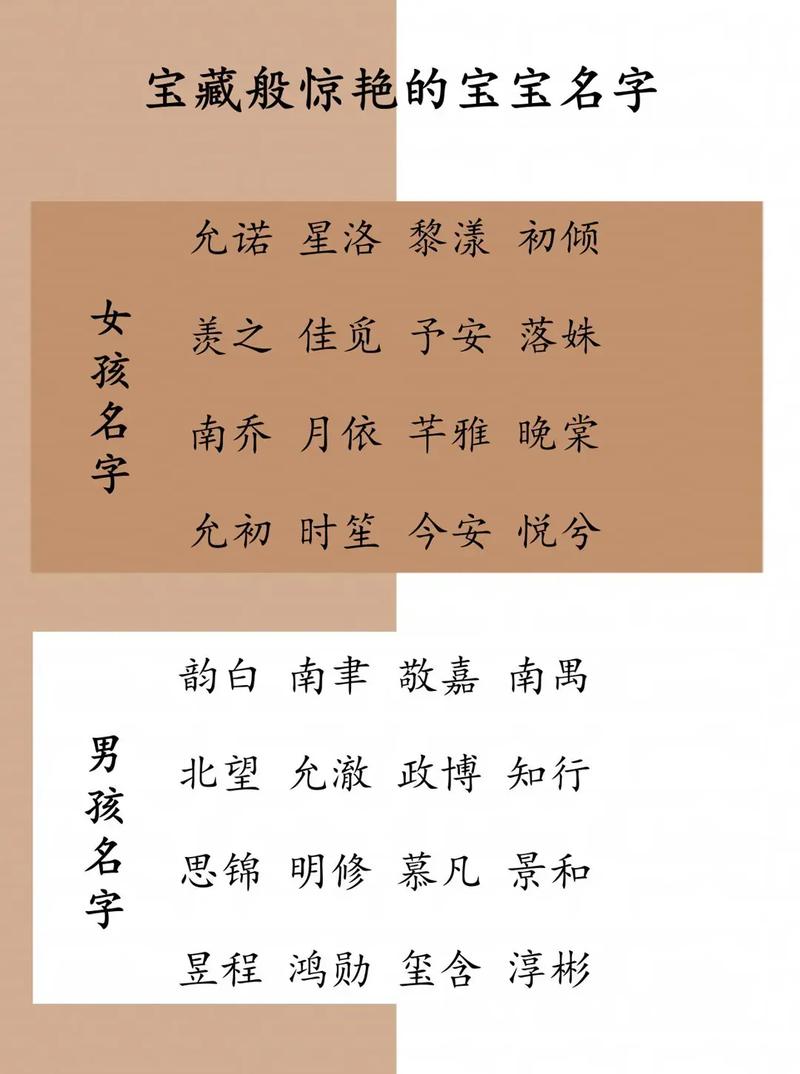 宝藏般惊艳的宝宝名字
女孩名字
允诺 星洛 黎漾 初倾
羡之 佳觅 予安 落姝
南乔 月依 芊雅 晚棠
允初 时笙 今安 悦兮
男孩名字
韵白 南聿 敬嘉 南禺
北望 允澈 政博 知行
思锦 明修 慕凡 景和
昱程 鸿勋 玺含 淳彬